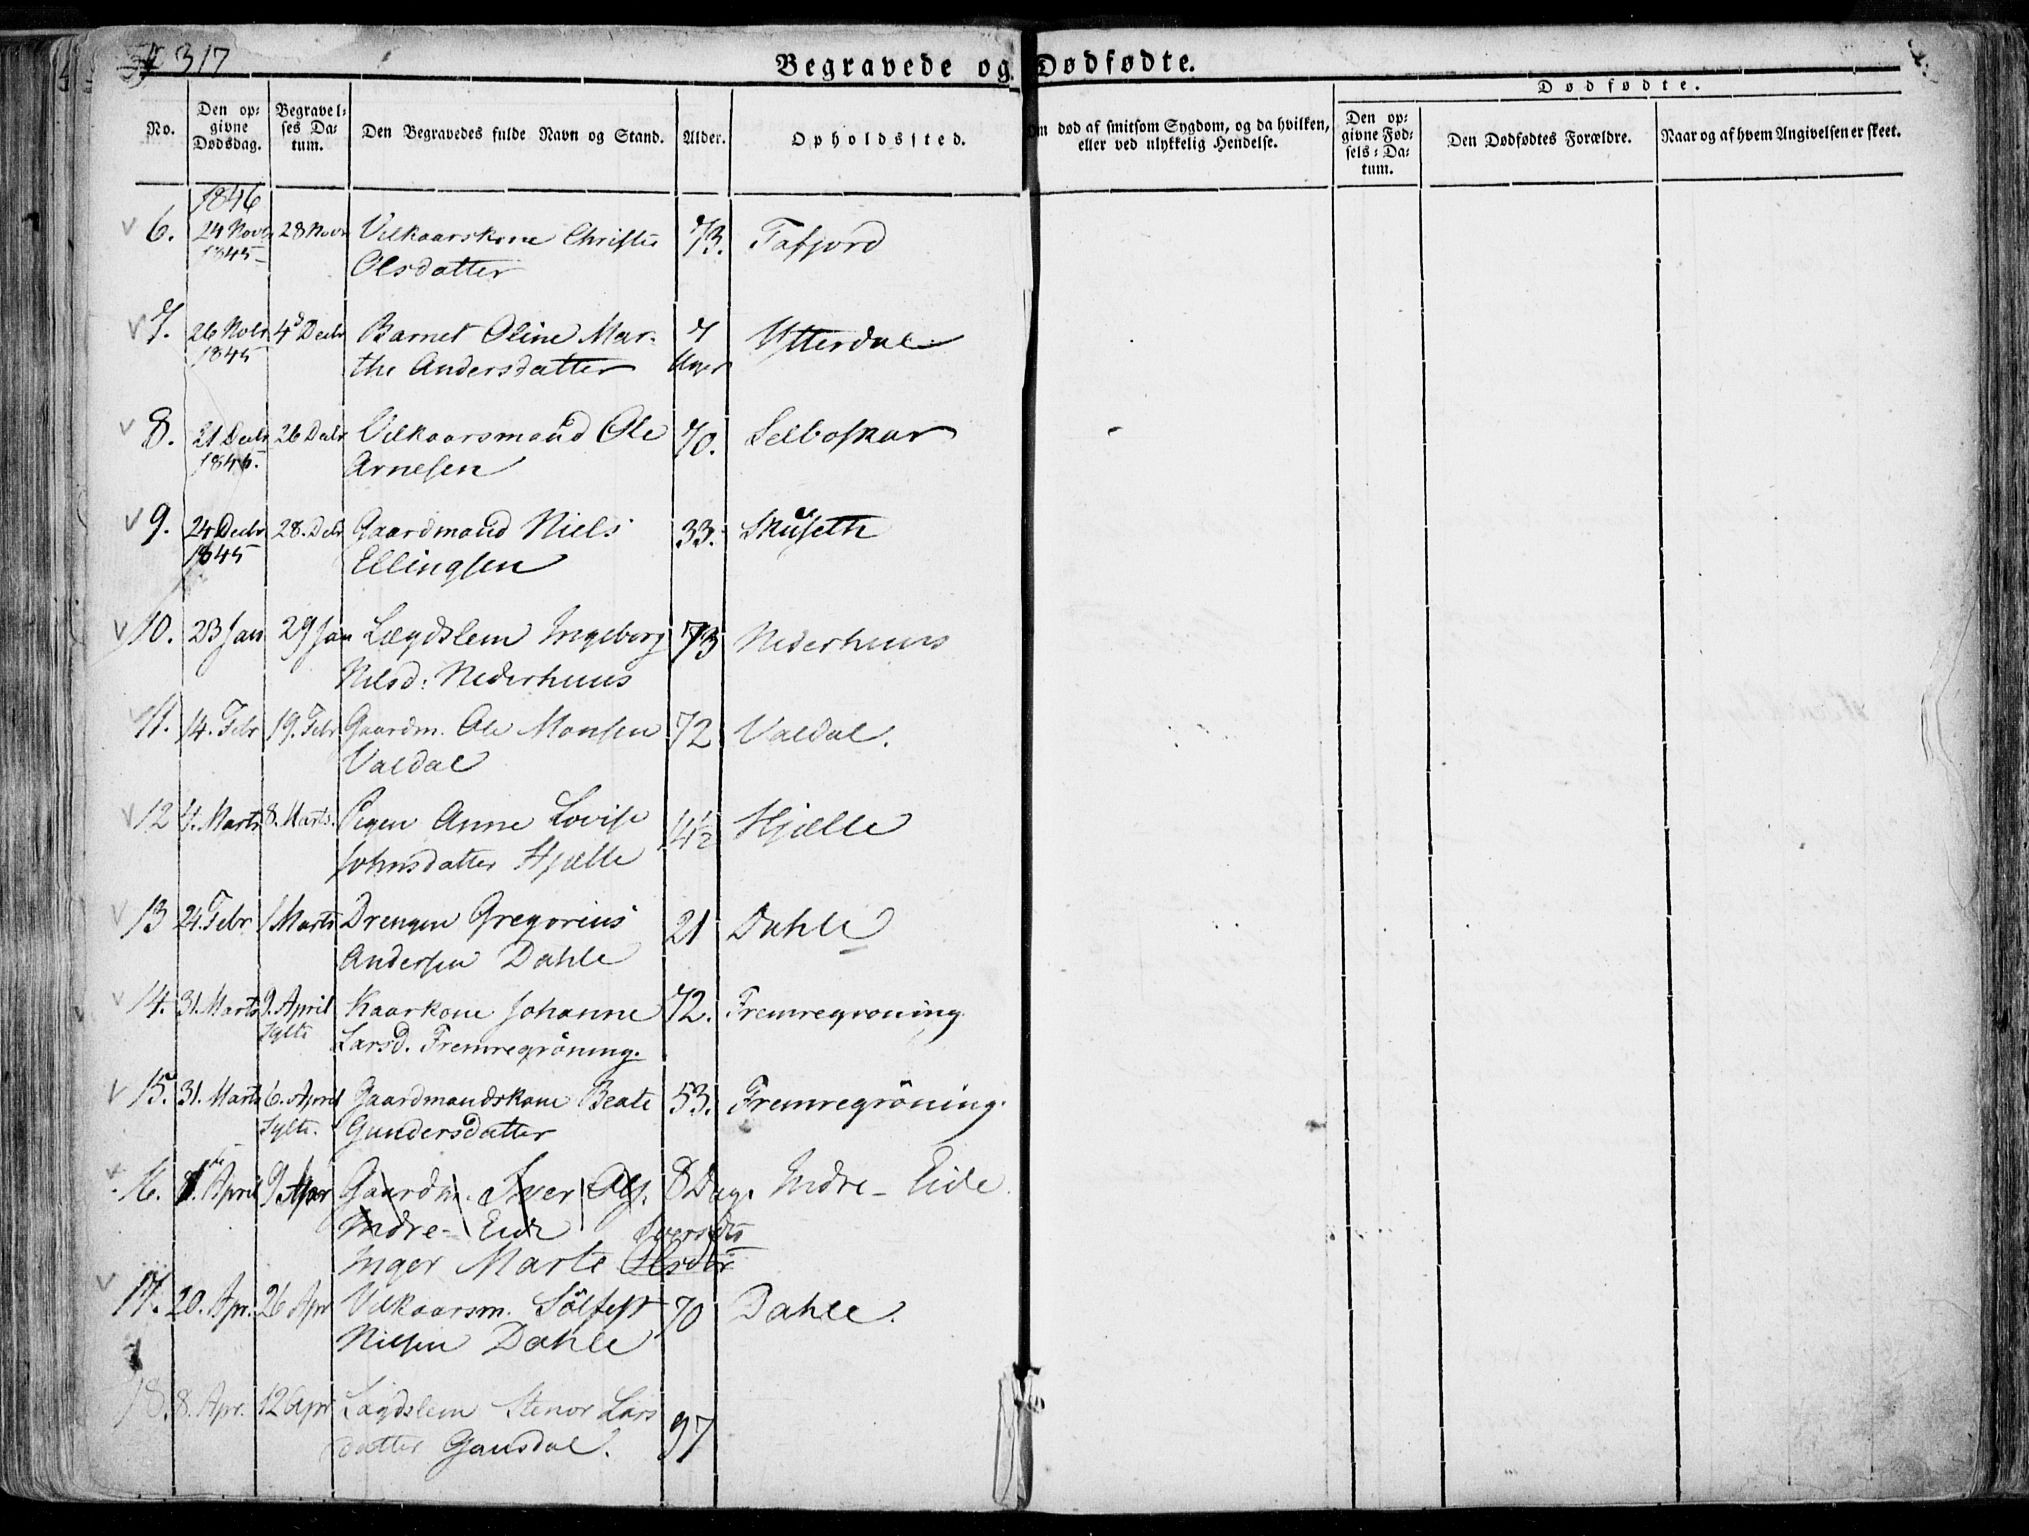 317
Begravede og Dødfødte.
No.
Den op-
givne
Dødsdag.
Begravel-
ses Da-
tum.
Den Begravedes fulde Navn og Stand.
Alder.
Opholdssted.
Om død af smitsom Sygdom, og da hvilken,
eller ved ulykkelig Hendelse.
Dødfødte.
Den op-
givne Fød-
sels-Da-
tum.
Den Dødfødtes Forældre.
Naar og af hvem Angivelsen er skeet.
1846
6. 24 Novb 28 Novr Vilkaarskone Christie 73. Tafjord
1845 Olsdatter
7. 26 Nobr 4d Decbr Barnet Oline Mar- 7 Ytterdal
1845 the Andersdatter Uger
8. 21 Decbr 26 Decbr Vilkaarsmand Ole 70. Selboskar
1845. Arnesen
9. 24 Decbr 28. Debr Gaardmand Niels 33. Skuseth
1845 Ellingsen
10. 23 Jan 29 Jan Lægdslem Ingeborg 73 Nederhuus
Nilsd: Nederhuus
11. 14. Febr 19. Febr Gaardm. Ole Monsen 72 Valdal.
Valdal
12 4. Marts 8. Marts. Pigen Anne Lovise 14½ Hjælle
Johnsdatter Hjælle
13 24. Febr 1 Marts Drengen Gregorius 21 Dahle
Andersen Dahle
14. 31. Marts 9. April Kaarkone Johanne 72. Fremregrøning.
Sylte Larsd. Fremregrøning.
15. 31. Marts 6. April Gaardmandskone Beate 53. Fremregrøning.
Sylte. Gundersdatter
16. 1. April 9 Apr Gaardm. Iver Ols. 8 Dag. Indre-Eide
Indre-Eide Iversdtr
Inger Marte Olsdtr
17. 20. Apr. 26 Apr Vilkaarsm. Sölfest 70 Dahle.
Nilsen Dahle
18. 8. Apr. 12 Apr Lægdslem Stenor Lars 97
datter Gausdal.